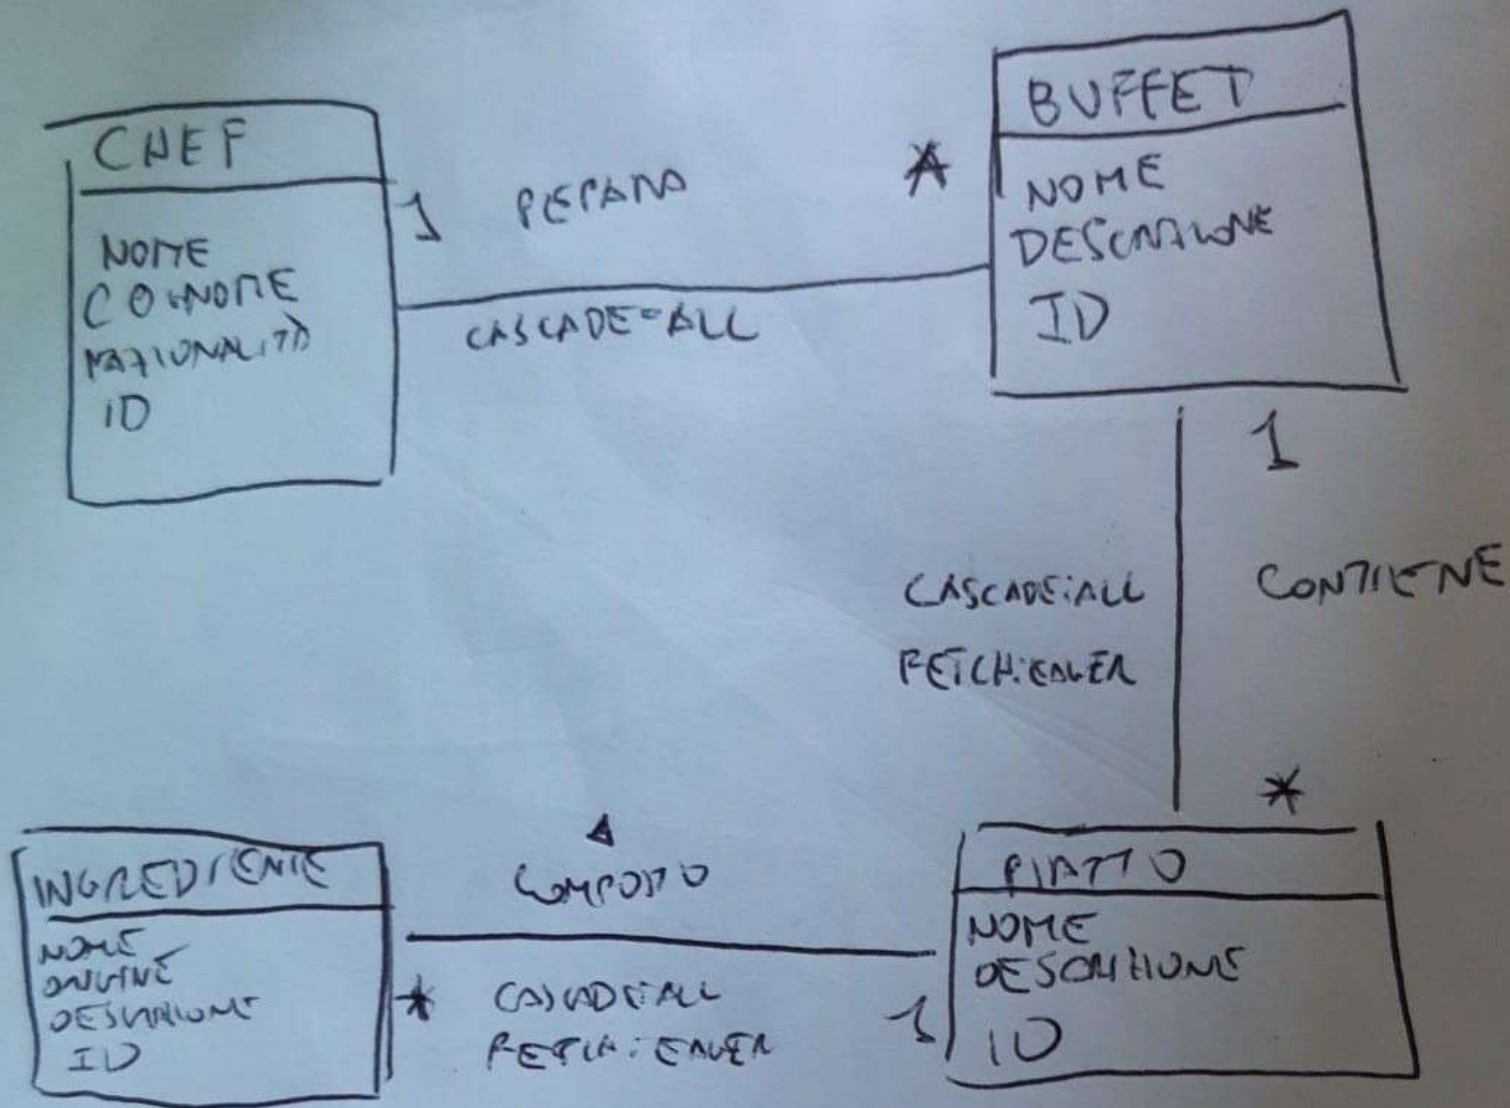 CHEF
NOME
COGNOME
NAZIONALITÀ
ID
1
PEPARA
*
CASCADE=ALL
BUFFET
NOME
DESCRIZIONE
ID
1
CASCADE:ALL
FETCH:EAGER
CONTIENE
*
INGREDIENTE
NOME
ORIGINE
DESCRIZIONE
ID
COMPOSTO
*
CASCADE:ALL
FETCH:EAGER
1
PIATTO
NOME
DESCRIZIONE
ID